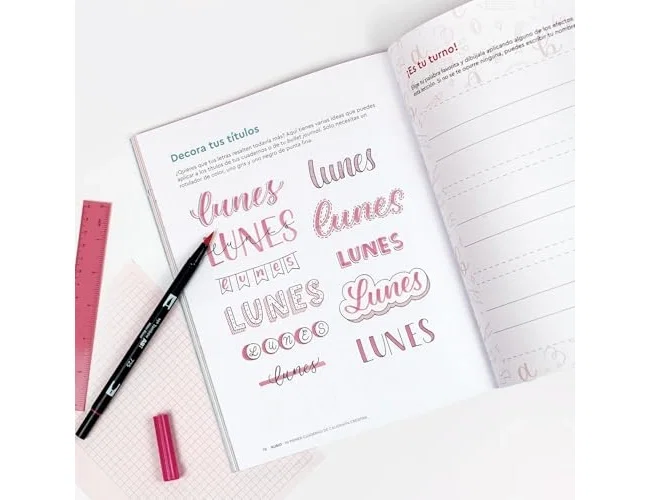 Decora tus títulos
¿Quieres que tus letras resalten todavía más? Aquí tienes varias ideas que puedes
aplicar a los títulos de tus cuadernos o de tu bullet journal. Solo necesitas un
rotulador de color, uno gris y uno negro de punta fina.
lunes
lunes
LUNES
lunes
lunes
LUNES
LUNES
LUNES
Lunes
LUNES
LUNES
lunes
¡Es tu turno!
Elige tu palabra favorita y dibújala aplicando alguno de los efectos
Si no se te ocurre ninguna, puedes escribir tu nombre
MI PRIMER CUADERNO DE CALIGRAFÍA CREATIVA